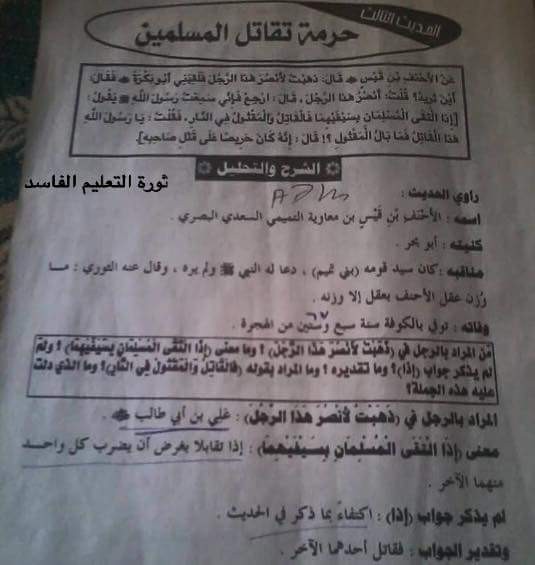 الحديث الثالث
حرمة تقاتل المسلمين
عَنْ الأَحْنَفِ بْنِ قَيْسٍ قَالَ: ذَهَبْتُ لأَنْصُرَ هَذَا الرَّجُلَ فَلَقِيَنِي أَبُو بَكْرَةَ ﷺ فَقَالَ:
أَيْنَ تُرِيدُ؟ قُلْتُ: أَنْصُرُ هَذَا الرَّجُلَ، قَالَ: ارْجِعْ فَإِنِّي سَمِعْتُ رَسُولَ اللَّهِ ﷺ يَقُولُ:
[إِذَا الْتَقَى الْمُسْلِمَانِ بِسَيْفَيْهِمَا فَالْقَاتِلُ وَالْمَقْتُولُ فِي النَّارِ، فَقُلْتُ: يَا رَسُولَ اللَّهِ
هَذَا الْقَاتِلُ فَمَا بَالُ الْمَقْتُولِ؟! قَالَ: إِنَّهُ كَانَ حَرِيصًا عَلَى قَتْلِ صَاحِبِهِ].
الشرح والتحليل
ثورة التعليم الفاسد
راوي الحديث :
اسمه : الأَحْنَفِ بْنِ قَيْسٍ بن معاوية التميمي السعدي البصري .
كنيته : أبو بحر .
مناقبه : كان سيد قومه (بني تميم) ، دعا له النبي ﷺ ولم يره ، وقال عنه الثوري : ما
وُزن عقل الأحنف بعقل إلا وزنه .
وفاته : توفي بالكوفة سنة سبع وستين من الهجرة .
مَن المراد بالرجل في (ذَهَبْتُ لأَنْصُرَ هَذَا الرَّجُلَ) ؟ وما معنى (إِذَا الْتَقَى الْمُسْلِمَانِ بِسَيْفَيْهِمَا) ؟ ولمَ
لم يذكر جواب (إذا) ؟ وما تقديره ؟ وما المراد بقوله (فَالْقَاتِلُ وَالْمَقْتُولُ فِي النَّارِ) ؟ وما الذي دلت
عليه هذه الجملة؟
المراد بالرجل في (ذَهَبْتُ لأَنْصُرَ هَذَا الرَّجُلَ) : علي بن أبي طالب .
معنى (إِذَا الْتَقَى الْمُسْلِمَانِ بِسَيْفَيْهِمَا) : إذا تقابلا بغرض أن يضرب كل واحد
منهما الآخر .
لم يذكر جواب (إذا) : اكتفاءً بما ذكر في الحديث .
وتقدير الجواب : فقاتل أحدهما الآخر .